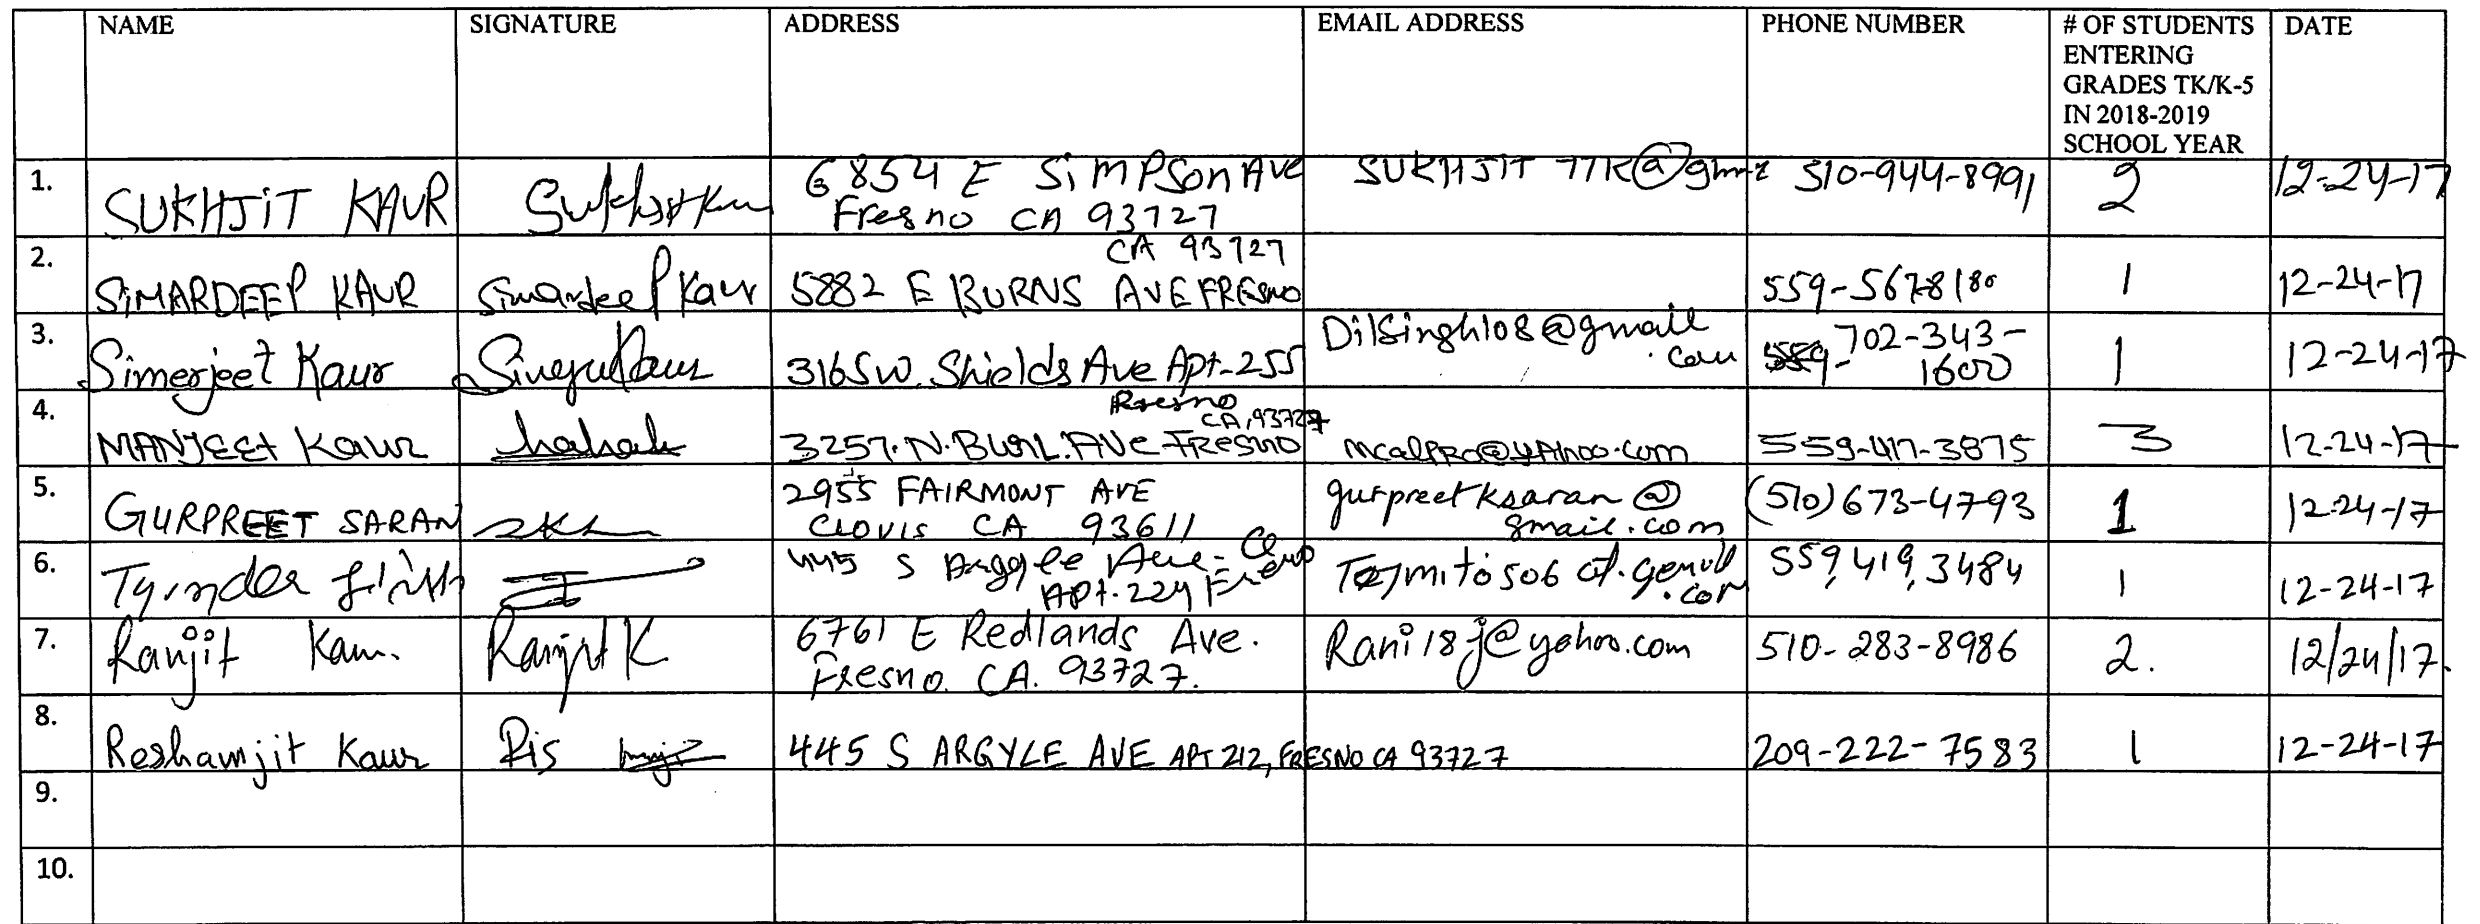 NAME SIGNATURE ADDRESS EMAIL ADDRESS PHONE NUMBER # OF STUDENTS ENTERING GRADES TK/K-5 IN 2018-2019 SCHOOL YEAR DATE
1. SUKHJIT KAUR 6854 E SIMPSON AVE Fresno CA 93727 SUKHJIT 77K@gm 510-944-8991 2 12-24-17
2. SIMARDEEP KAUR Simardeep Kaur 5882 E BURNS AVE FRESNO CA 93727 559-567-8180 1 12-24-17
3. Simerjeet Kaur 3165 W. Shields Ave Apt-255 Fresno Dilsingh108@gmail.com 559- 702-343-1600 1 12-24-17
4. MANJEET Kaur 3257. N. BURL. AVE FRESNO CA, 93727 mcalpra@yAhoo.com 559-417-3875 3 12-24-17
5. GURPREET SARAN 2955 FAIRMONT AVE CLOVIS CA 93611 gurpreetksaran@gmail.com (510) 673-4793 1 12-24-17
6. 445 S Ave APT. 224 559, 419, 3484 1 12-24-17
7. Ranjit Kaur. Ranjit K 6761 E Redlands Ave. Fresno. CA. 93727. Rani18j@yahoo.com 510-283-8986 2. 12/24/17.
8. Reshamjit Kaur 445 S ARGYLE AVE APT 212, FRESNO CA 93727 209-222-7583 1 12-24-17
9.
10.